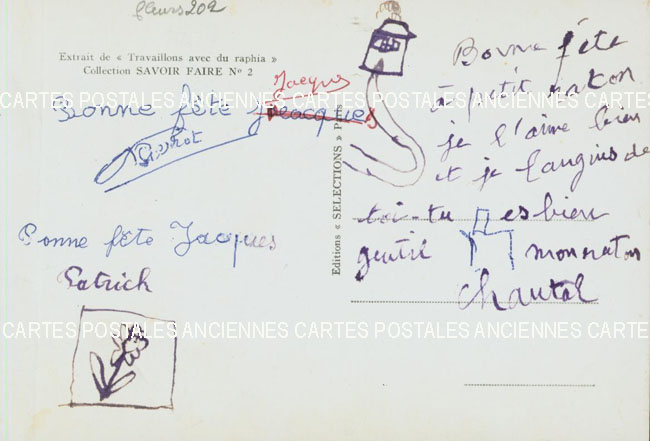 fleurs 202
Extrait de « Travaillons avec du raphia »
Collection SAVOIR FAIRE Nº 2
Jacques
Bonne fête
Pierrot
Bonne fête Jacques
Patrick
Editions « SELECTIONS »
Bonne fête
à petit raton
je l'aime bien
et je languis de
toi-tu es bien
gentil mon raton
Chantal
CARTES POSTALES ANCIENNES CARTES POSTALES ANCIENNES CARTE
CARTES POSTALES ANCIENNES CARTES POSTALES ANCIENNES CARTE